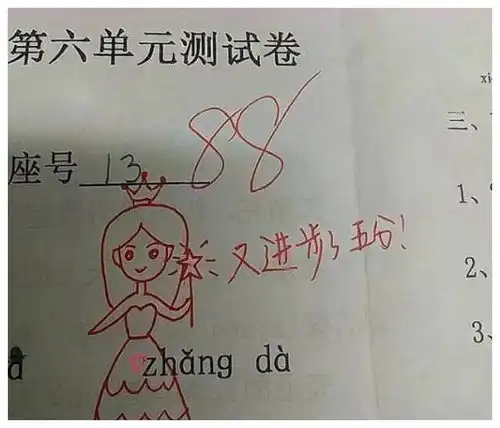 第六单元测试卷
xi
三、
88
座号 13
1、
又进步了五分！
2、
3、
zhǎng dà